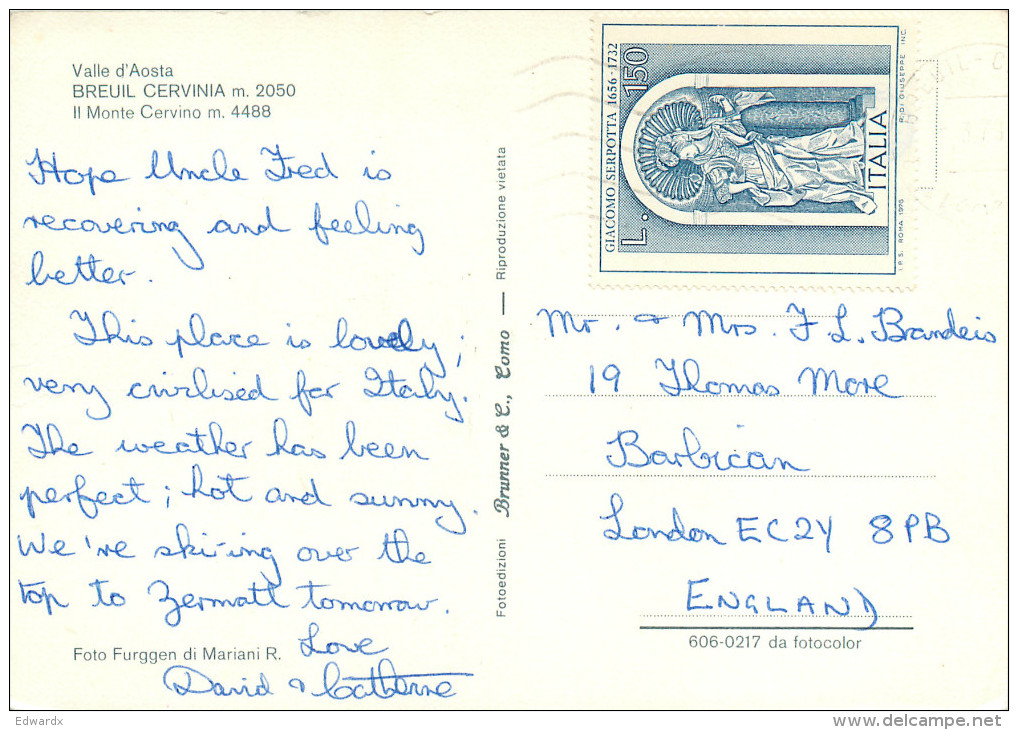 Valle d'Aosta
BREUIL CERVINIA m. 2050
Il Monte Cervino m. 4488
Hope Uncle Fred is
recovering and feeling
better.
This place is lovely;
very civilised for Italy.
The weather has been
perfect; hot and sunny.
We're ski-ing over the
top to Zermatt tomorrow.
Love
David & Catherine
Foto Furggen di Mariani R.
Fotoedizioni Brunner & C., Como — Riproduzione vietata
GIACOMO SERPOTTA 1656-1732
L. 150
ITALIA
I.P.S. ROMA 1976
R. DI GIUSEPPE INC.
Mr. & Mrs. F L. Brandeis
19 Thomas More
Barbican
London EC2Y 8PB
ENGLAND
606-0217 da fotocolor
Edwardx
www.delcampe.net